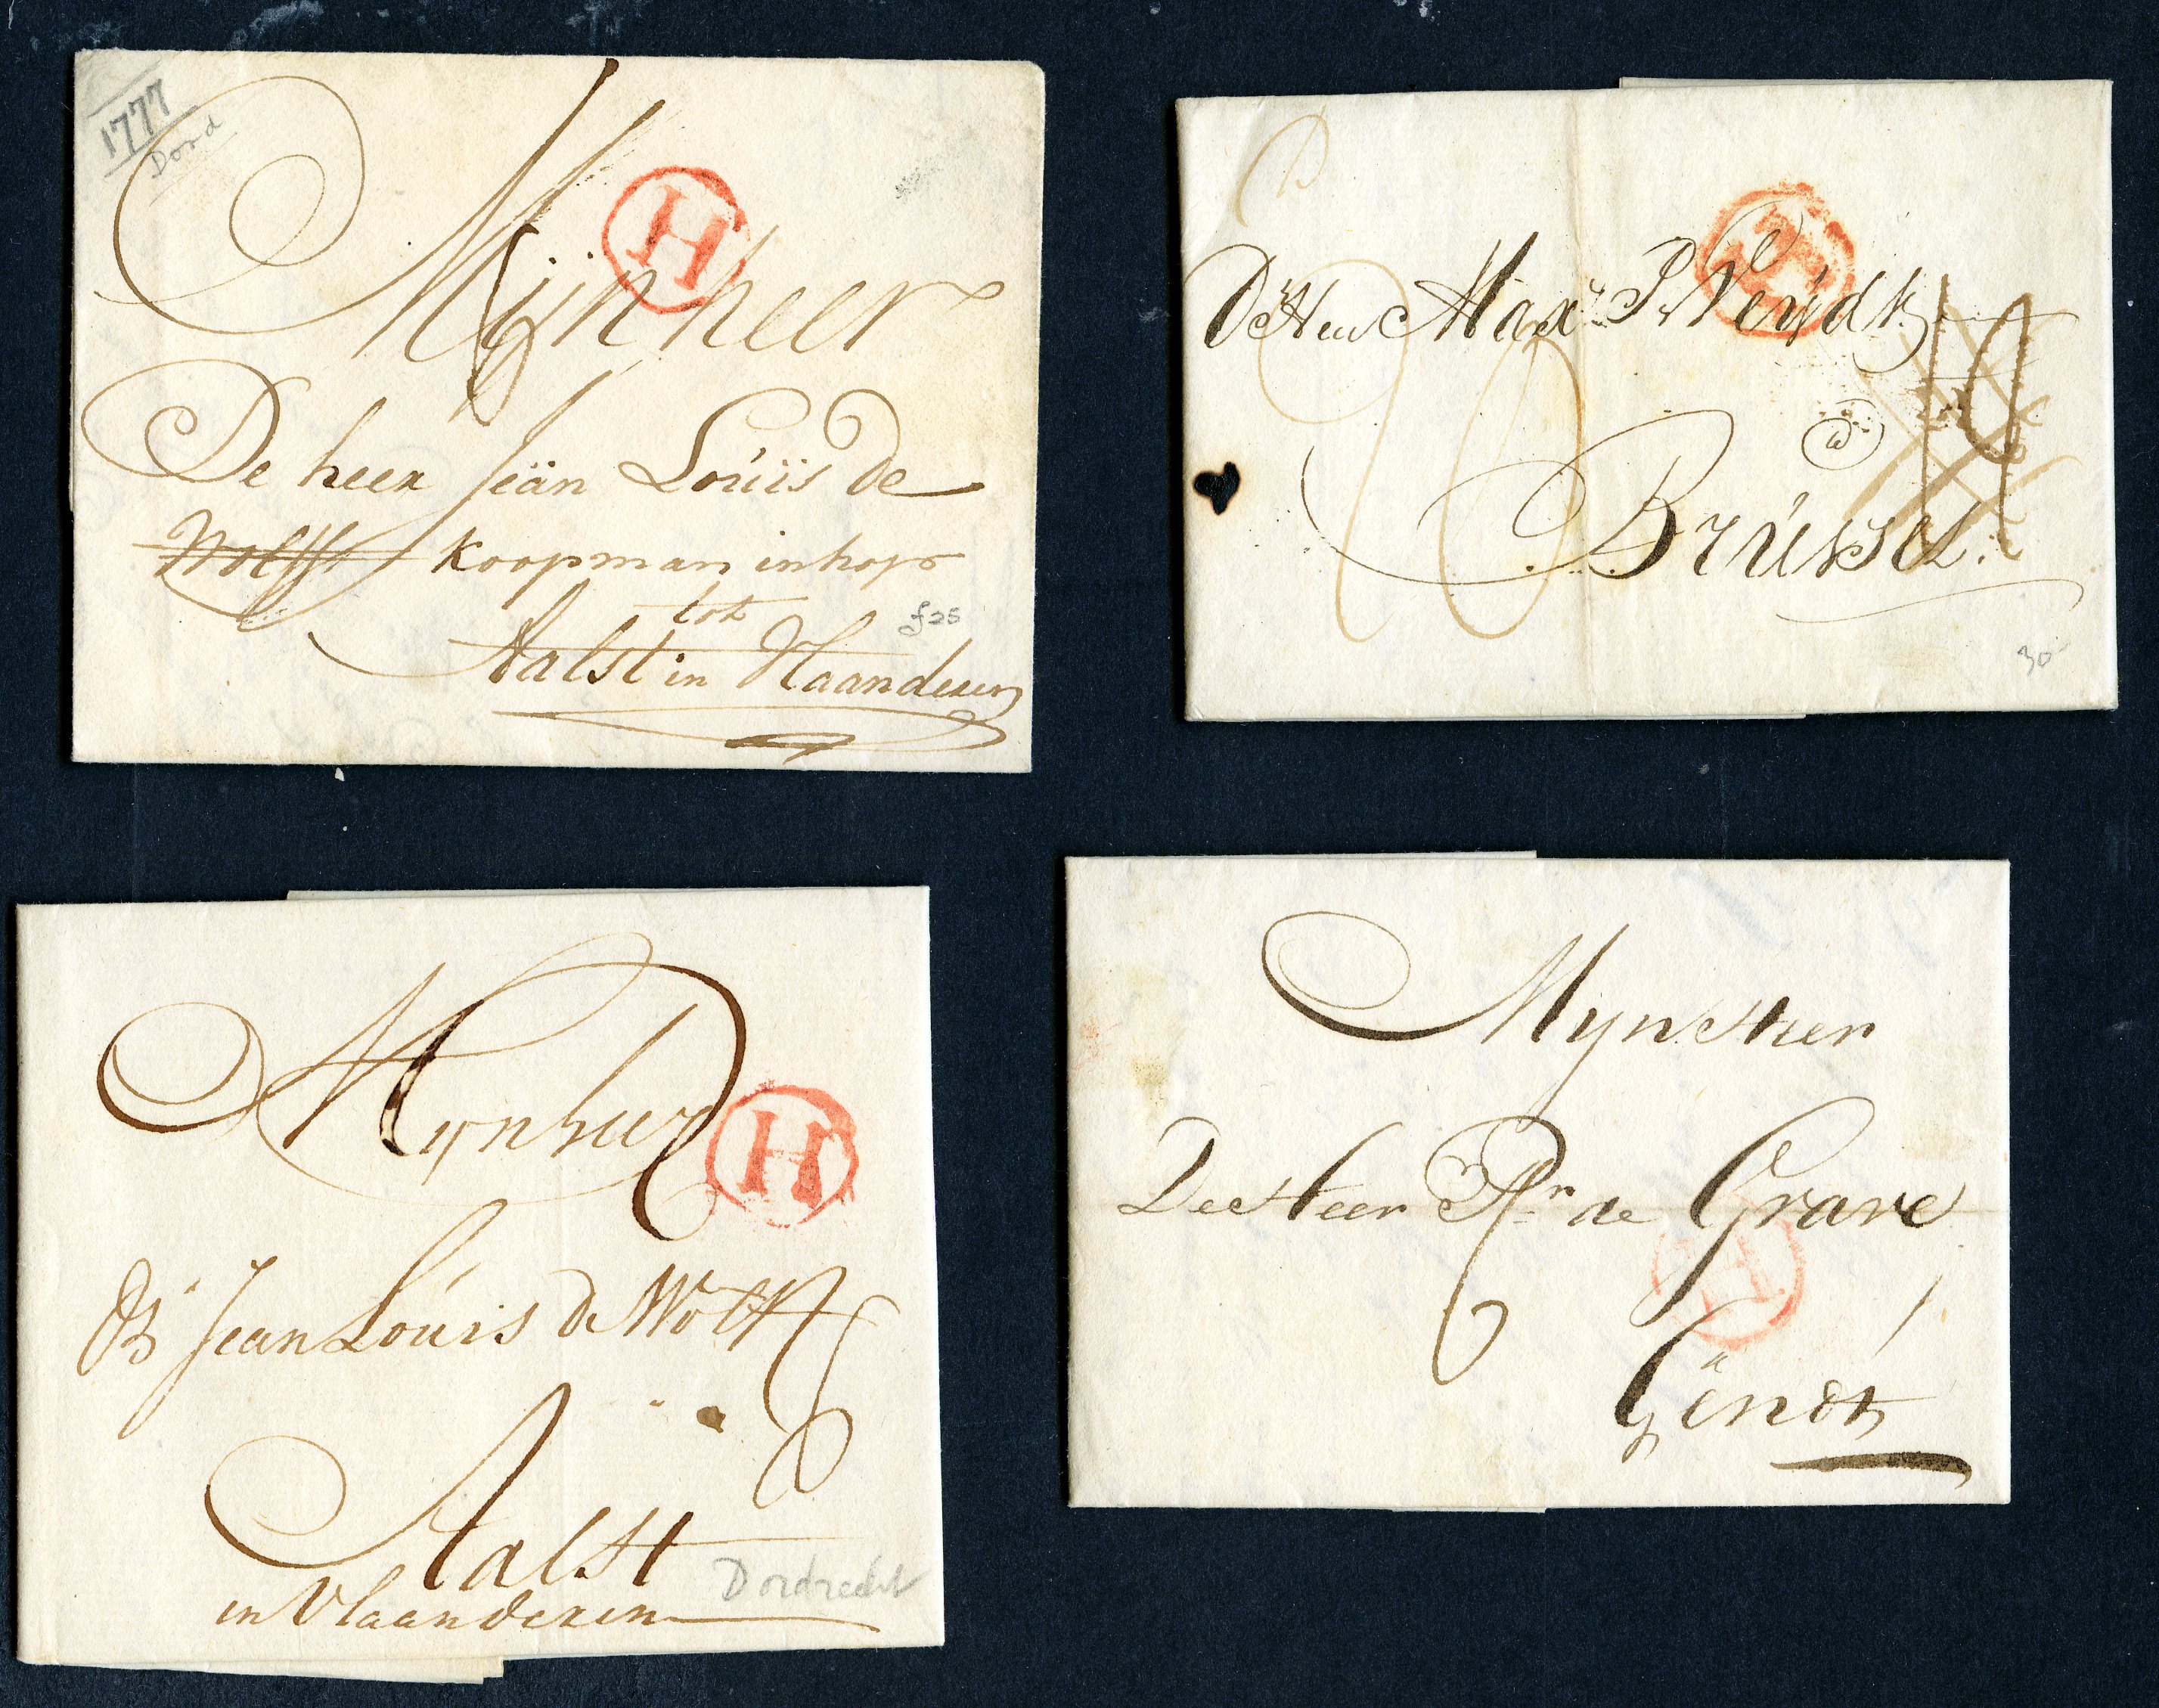 1777
Dord
H
Mijnheer
6
De heer Jeän Loúïs de
Wolff koopman in hop
tot
Aalst in Vlaanderen
f25
H
De Heer Max P
20
a
Brússel.
30
Mynheer
H
Jean Loúis de Wolff
6
Aalst
in Vlaanderen
Dordrecht
Myn Heer
De Heer Pr de Grave
H
6
Gendt